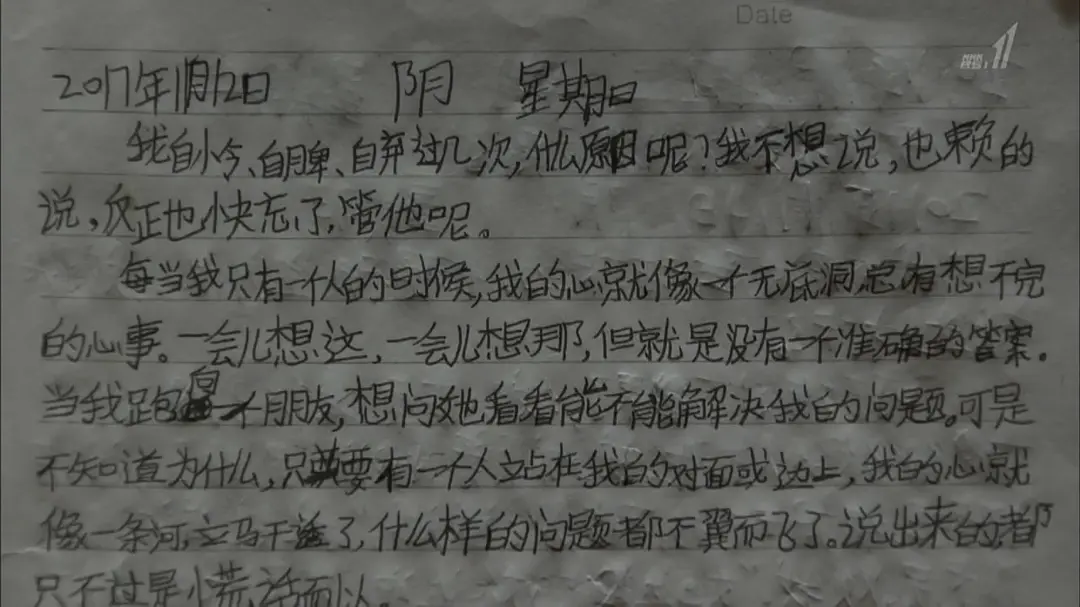 Date
2017年11月12日 阴 星期日
我自怜、自脾、自弃过几次,什么原因呢?我不想说,也赖的
说,反正也快忘了,管他呢。
每当我只有一个人的时候,我的心就像一个无底洞,总有想不完
的心事。一会儿想这,一会儿想那,但就是没有一个准确的答案。
当我跑向一个朋友,想问她,看看能不能解决我的问题。可是
不知道为什么,只要有一个人立占在我的对面或边上,我的心就
像一条河,立马干了,什么样的问题都不翼而飞了。说出来的,都
只不过是慌话而以。